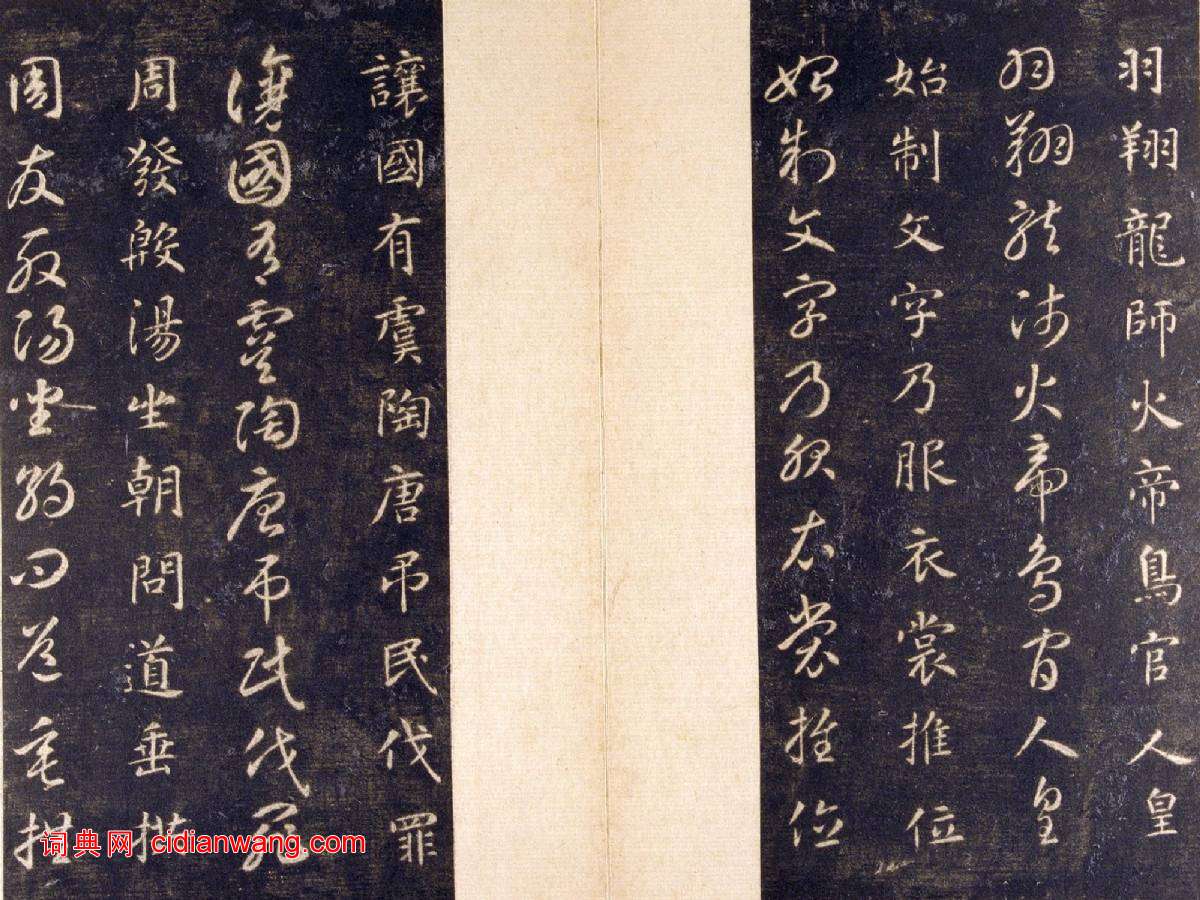 羽翔龍師火帝鳥官人皇
羽翔龍師火帝鳥官人皇
始制文字乃服衣裳推位
始制文字乃服衣裳推位
讓國有虞陶唐吊民伐罪
讓國有虞陶唐吊民伐罪
周發殷湯坐朝問道垂拱
周發殷湯坐朝問道垂拱
词典网：cidianwang.com